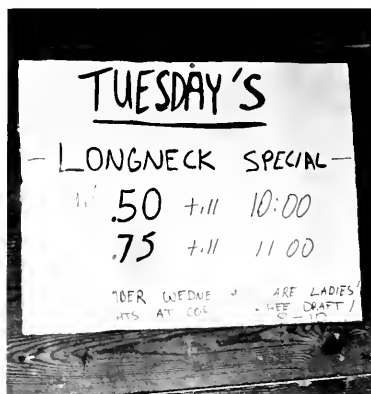 TUESDAY'S
- LONGNECK SPECIAL -
.50 till 10:00
.75 till 11:00
ARE LADIES'
AT DRAFT